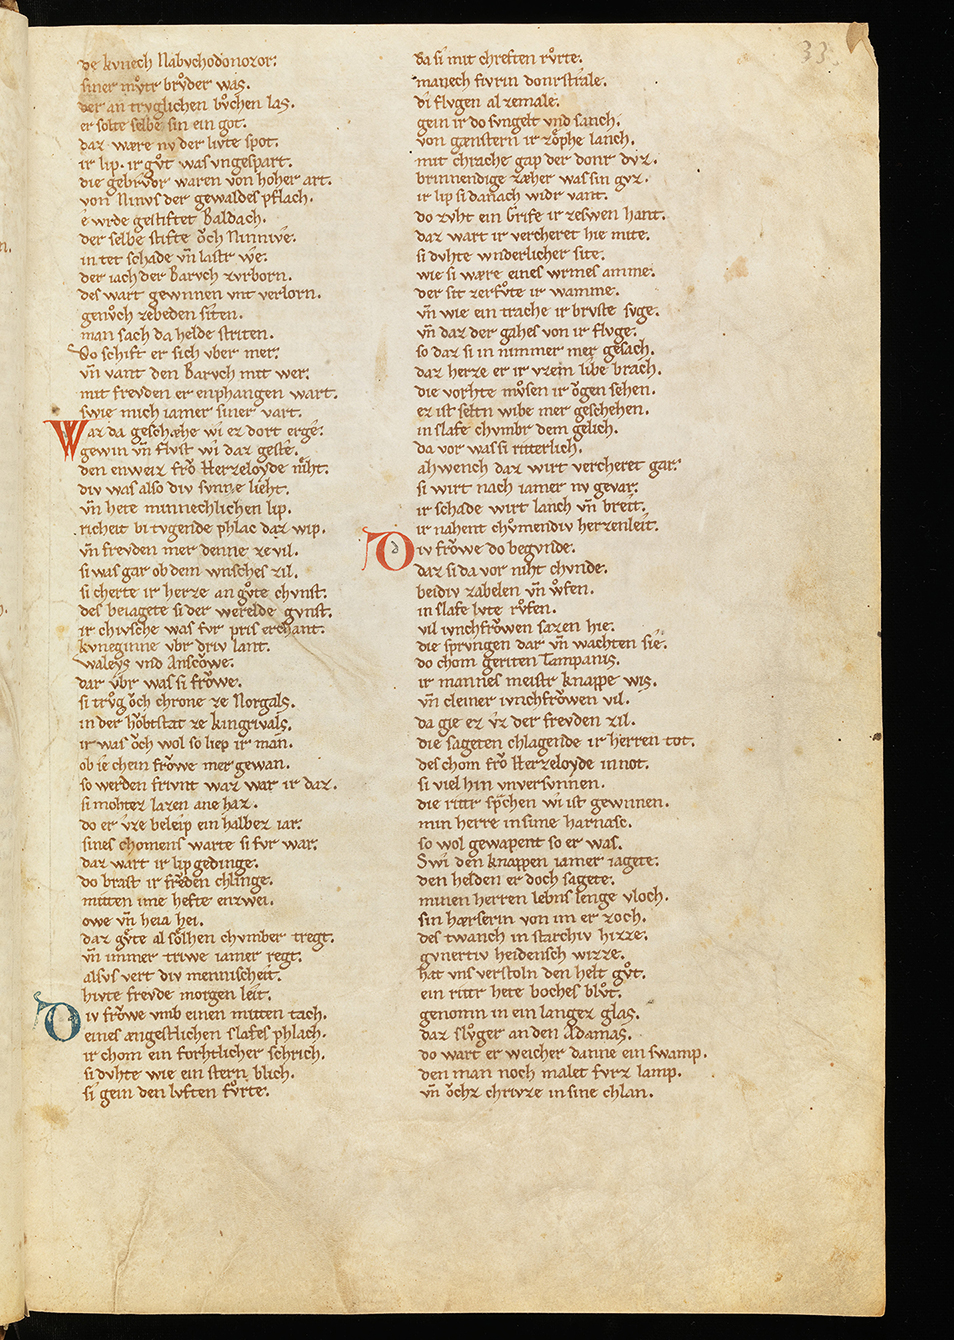 33.
de kvnech Nabvchodonozor:
siner mv̊tr brv̊der was.
der an trvglichen bv̊chen las.
er solte selbe sin ein got.
daz wære nv der livte spot.
ir lip. ir gv̊t was vngespart.
die gebrvdr waren von hoher art.
von Ninvs der gewaldes pflach.
e wrde gestiftet Baldach.
der selbe stifte ǒch Ninnive.
in tet schade vn̄ lastr we.
der iach der Barvch zvrborn.
des wart gewnnen vnt verlorn.
genv̊ch zebeden siten.
man sach da helde striten.
So schift er sich vber mer:
vn̄ vant den Barvch mit wer:
mit frevden er enphangen wart.
swie mich iamer siner vart.
Waz da geschæhe wi ez dort erge:
gewin vn̄ flvst wi daz geste.
den enweiz frǒ Herzeloyde niht.
div was also div svnne lieht.
vn̄ hete minnechlichen lip.
richeit bi tvgende phlac daz wip.
vn̄ frevden mer denne ze vil.
si was gar ob dem wnsches zil.
si cherte ir herze an gv̊te chvnst.
des beiagete si der werelde gvnst.
ir chivsche was fvr pris erchant.
kvneginne vbr driv lant.
waleys vnd Anscǒwe.
dar v̊br was si frǒwe.
si trv̊g ǒch chrone ze Norgals.
in der hǒbtstat ze kingrivals.
ir was ǒch wol so liep ir man.
ob ie chein frǒwe mer gewan.
so werden frivnt waz war ir daz.
si mohtez lazen ane haz.
do er v̊ze beleip ein halbez iar:
sines chomens warte si fvr war:
daz wart ir lip gedinge.
do brast ir frěden chlinge.
mitten ime hefte enzwei.
owe vn̄ heia hei.
daz gv̊te al sǒlhen chvmber tregt.
vn̄ immer triwe iamer regt.
alsvs vert div mennischeit.
hivte frevde morgen leit.
Div frǒwe vmb einen mitten tach.
eines ængestlichen slafes phlach.
ir chom ein forhtlicher schrich.
si dvhte wie ein stern blich.
si gein den lvften fv̊rte.
da si mit chreften rv̊rte.
manech fivrin donrstrale.
di flvgen al zemale.
gein ir do svngelt vnd sanch.
von gænstern ir zǒphe lanch.
mit chrache gap der donr dvz.
brinnendige zæher was sin gvz.
ir lip si danach widr vant.
do zvht ein Grife ir zeswen hant.
daz wart ir vercheret hie mite.
si dvhte wnderlicher site.
wie si wære eines wrmes amme.
der sit zerfv̊te ir wamme.
vn̄ wie ein trache ir brvste svge.
vn̄ daz der gahes von ir flvge.
so daz si in nimmer mer gesach.
daz herze er ir vzem libe brach.
die vorhte mv̊sen ir ǒgen sehen.
ez ist seltn wibe mer geschehen.
in slafe chvmbr dem gelich.
da vor was si ritterlich.
ah wench daz wirt vercheret gar:
si wirt nach iamer nv gevar:
ir schade wirt lanch vn̄ breit.
ir nahent chv̊mendiv herzenleit.
Div frǒwe do begvnde.
daz si da vor niht chvnde.
beidiv zabelen vn̄ wv̊fen.
in slafe lvte rv̊fen.
vil ivnchfrǒwen sazen hie.
die sprvngen dar vn̄ wachten sie.
do chom geriten Tampanis.
ir mannes meistr knappe wis.
vn̄ cleiner ivnchfrǒwen vil.
da gie ez v̊z der frevden zil.
die sageten chlagende ir herren tot.
des chom frǒ Herzeloyde in not.
si viel hin vnversvnnen.
die rittr sp̄chen wi ist gewnnen.
min herre in sime harnasc.
so wol gewapent so er was.
Swi den knappen iamer iagete:
den helden er doch sagete.
minen herren lebns lenge vloch.
sin hærserin von im er zoch.
des twanch in starchiv hizze.
gvnertiv heidensch wizze.
hat vns verstoln den helt gv̊t.
ein rittr hete boches blv̊t.
genomn in ein langez glas.
daz slv̊ger an den Adamas.
do wart er weicher danne ein swamp.
den man noch malet fvrz lamp.
vn̄ ǒchz chrivze in sine chlan.